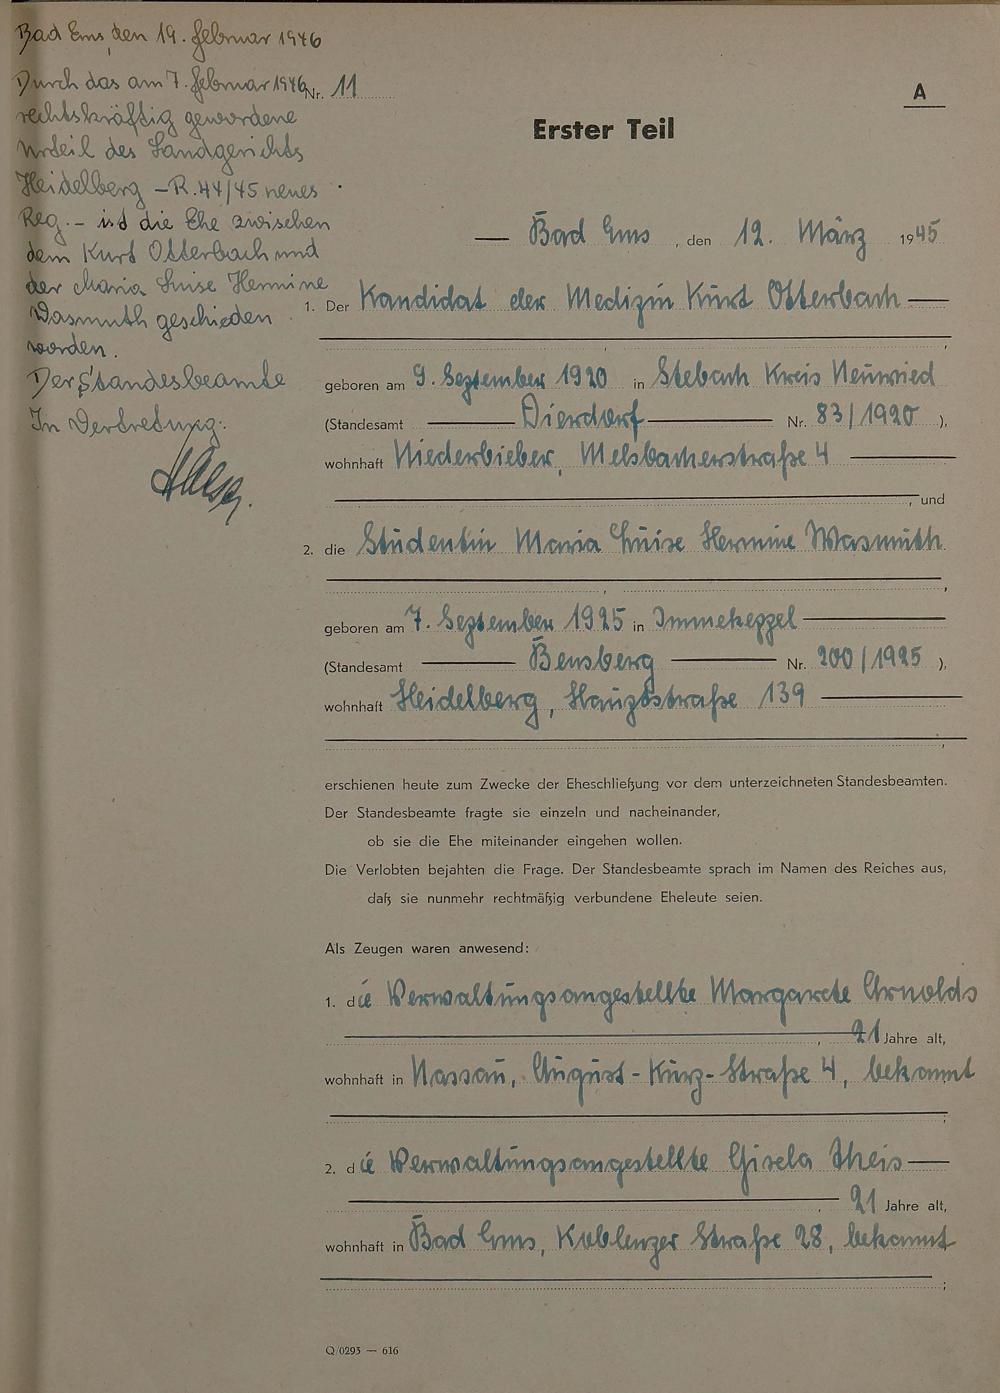 Bad Ems, den 19. Februar 1946
Durch das am 7. Februar 1946
rechtskräftig gewordene
Urteil des Landgerichts
Heidelberg – R. 44/45 neues
Reg. – ist die Ehe zwischen
dem Kurt Otterbach und
der Maria Luise Hermine
Wasmuth geschieden
worden.
Der Standesbeamte
In Vertretung:
Nr. 11
A
Erster Teil
Bad Ems, den 12. März 1945
1. Der Kandidat der Medizin Kurt Otterbach
geboren am 9. September 1920 in Stebach Kreis Neuwied
(Standesamt Dierdorf Nr. 83/1920),
wohnhaft Niederbieber, Melsbacherstraße 4
, und
2. die Studentin Maria Luise Hermine Wasmuth
geboren am 7. September 1925 in Immekeppel
(Standesamt Bensberg Nr. 200/1925),
wohnhaft Heidelberg, Hauptstraße 139
erschienen heute zum Zwecke der Eheschließung vor dem unterzeichneten Standesbeamten.
Der Standesbeamte fragte sie einzeln und nacheinander,
ob sie die Ehe miteinander eingehen wollen.
Die Verlobten bejahten die Frage. Der Standesbeamte sprach im Namen des Reiches aus,
daß sie nunmehr rechtmäßig verbundene Eheleute seien.
Als Zeugen waren anwesend:
1. die Verwaltungsangestellte Margarete Arnolds
, 21 Jahre alt,
wohnhaft in Nassau, August-Kurz-Straße 4, bekannt
;
2. die Verwaltungsangestellte Gisela Theis
, 21 Jahre alt,
wohnhaft in Bad Ems, Koblenzer Straße 28, bekannt
;
Q/0293 — 616